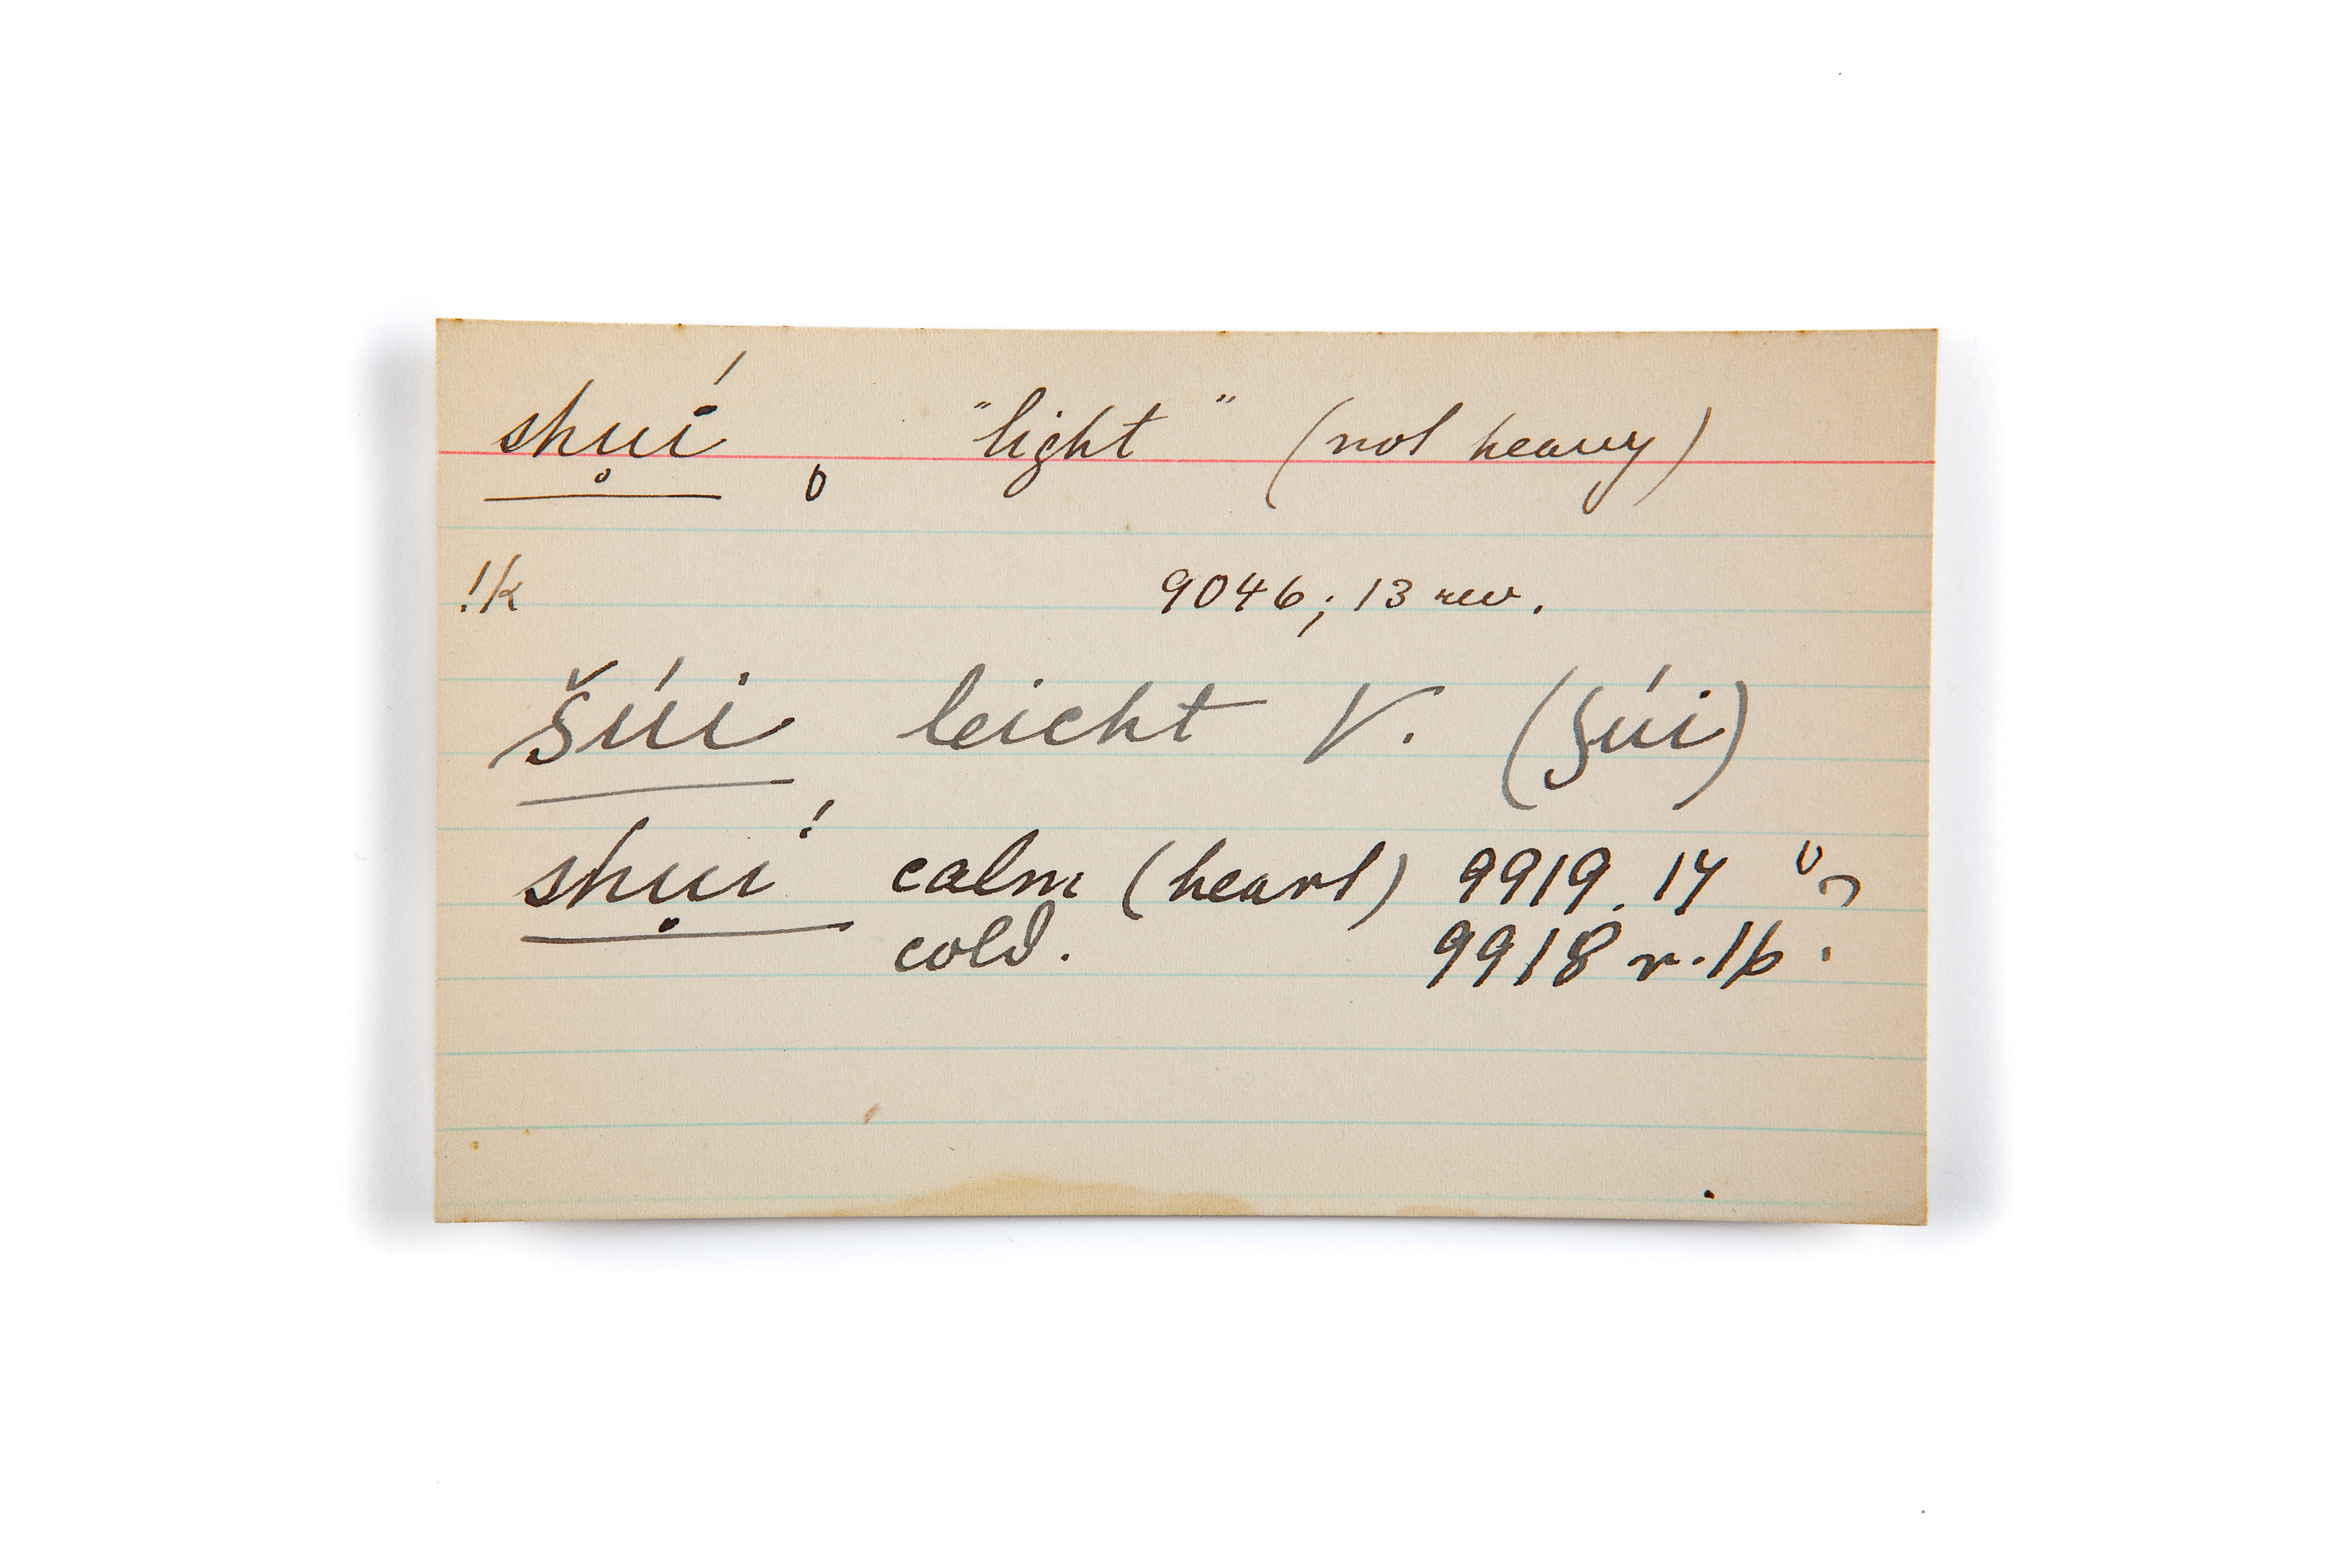 shu̥í "light" (not heavy)
!k 9046; 13 rev.
šúi leicht V. (ʃúi)
shụí calm (heart) 9919. 14
cold. 9918 r. 16.